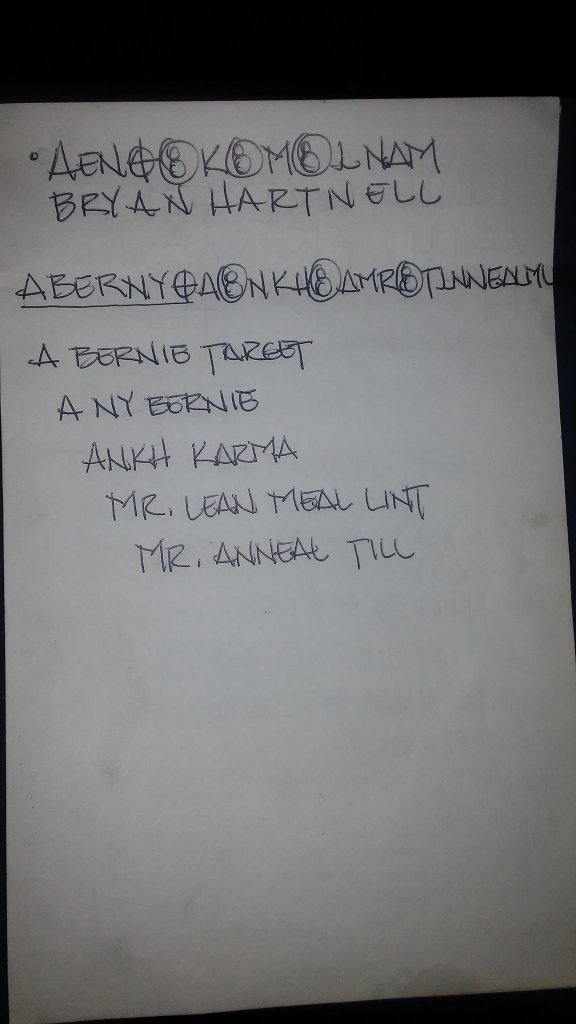 AEN⊕⑧K⑧M⑧LNAM
BRYAN HARTNELL
ABERNY⊕A⑧NKH⑧AMR⑧TLNNEALML
A BERNIE TARGET
A NY BERNIE
ANKH KARMA
MR. LEAN MEAL LINT
MR. ANNEAL TILL